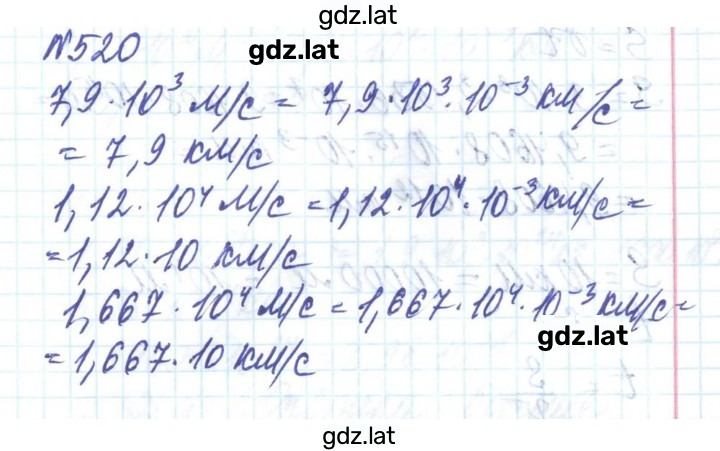 gdz.lat
№520
gdz.lat
7,9·10³ м/с = 7,9·10³·10⁻³ км/с =
= 7,9 км/с
1,12·10⁴ м/с = 1,12·10⁴·10⁻³ км/с =
= 1,12·10 км/с
1,667·10⁴ м/с = 1,667·10⁴·10⁻³ км/с =
gdz.lat
= 1,667·10 км/с
gdz.lat